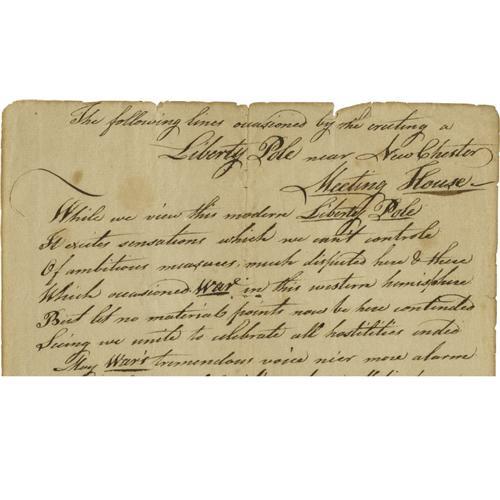 The following lines occasioned by the erecting a
Liberty Pole near New Chester
Meeting House
While we view this modern Liberty Pole
It exites sensations which we can't controle
Of ambitious measures much disputed here & there
Which occasioned War in this western hemisphere
But let no material points now be here contended
Seing we unite to celebrate all hostilities ended
May War's tremendous voice nier more alarm